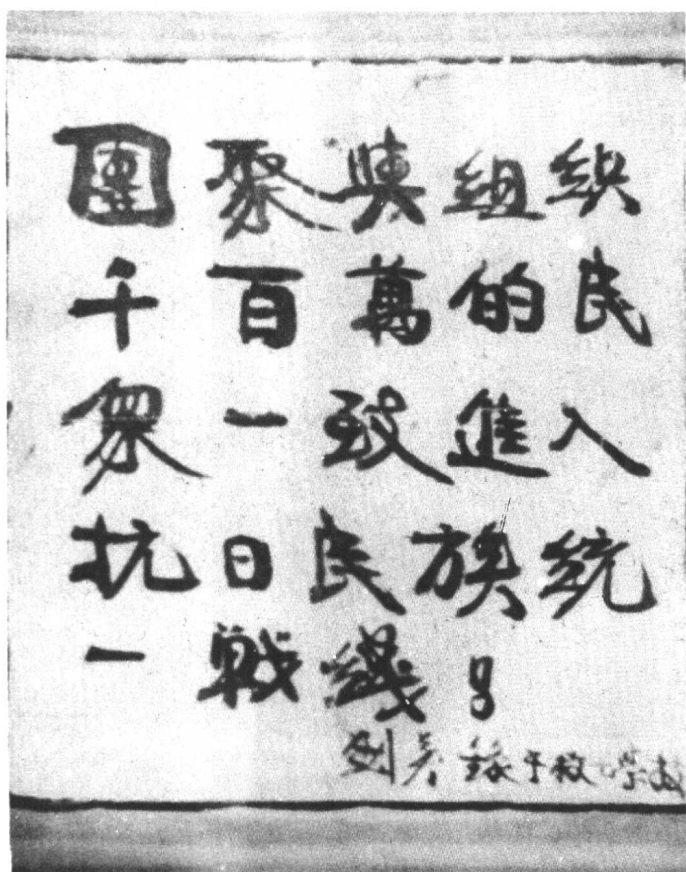 團聚與組织
千百萬的民
衆一致進入
抗日民族統
一戰綫!
劍英錄于校